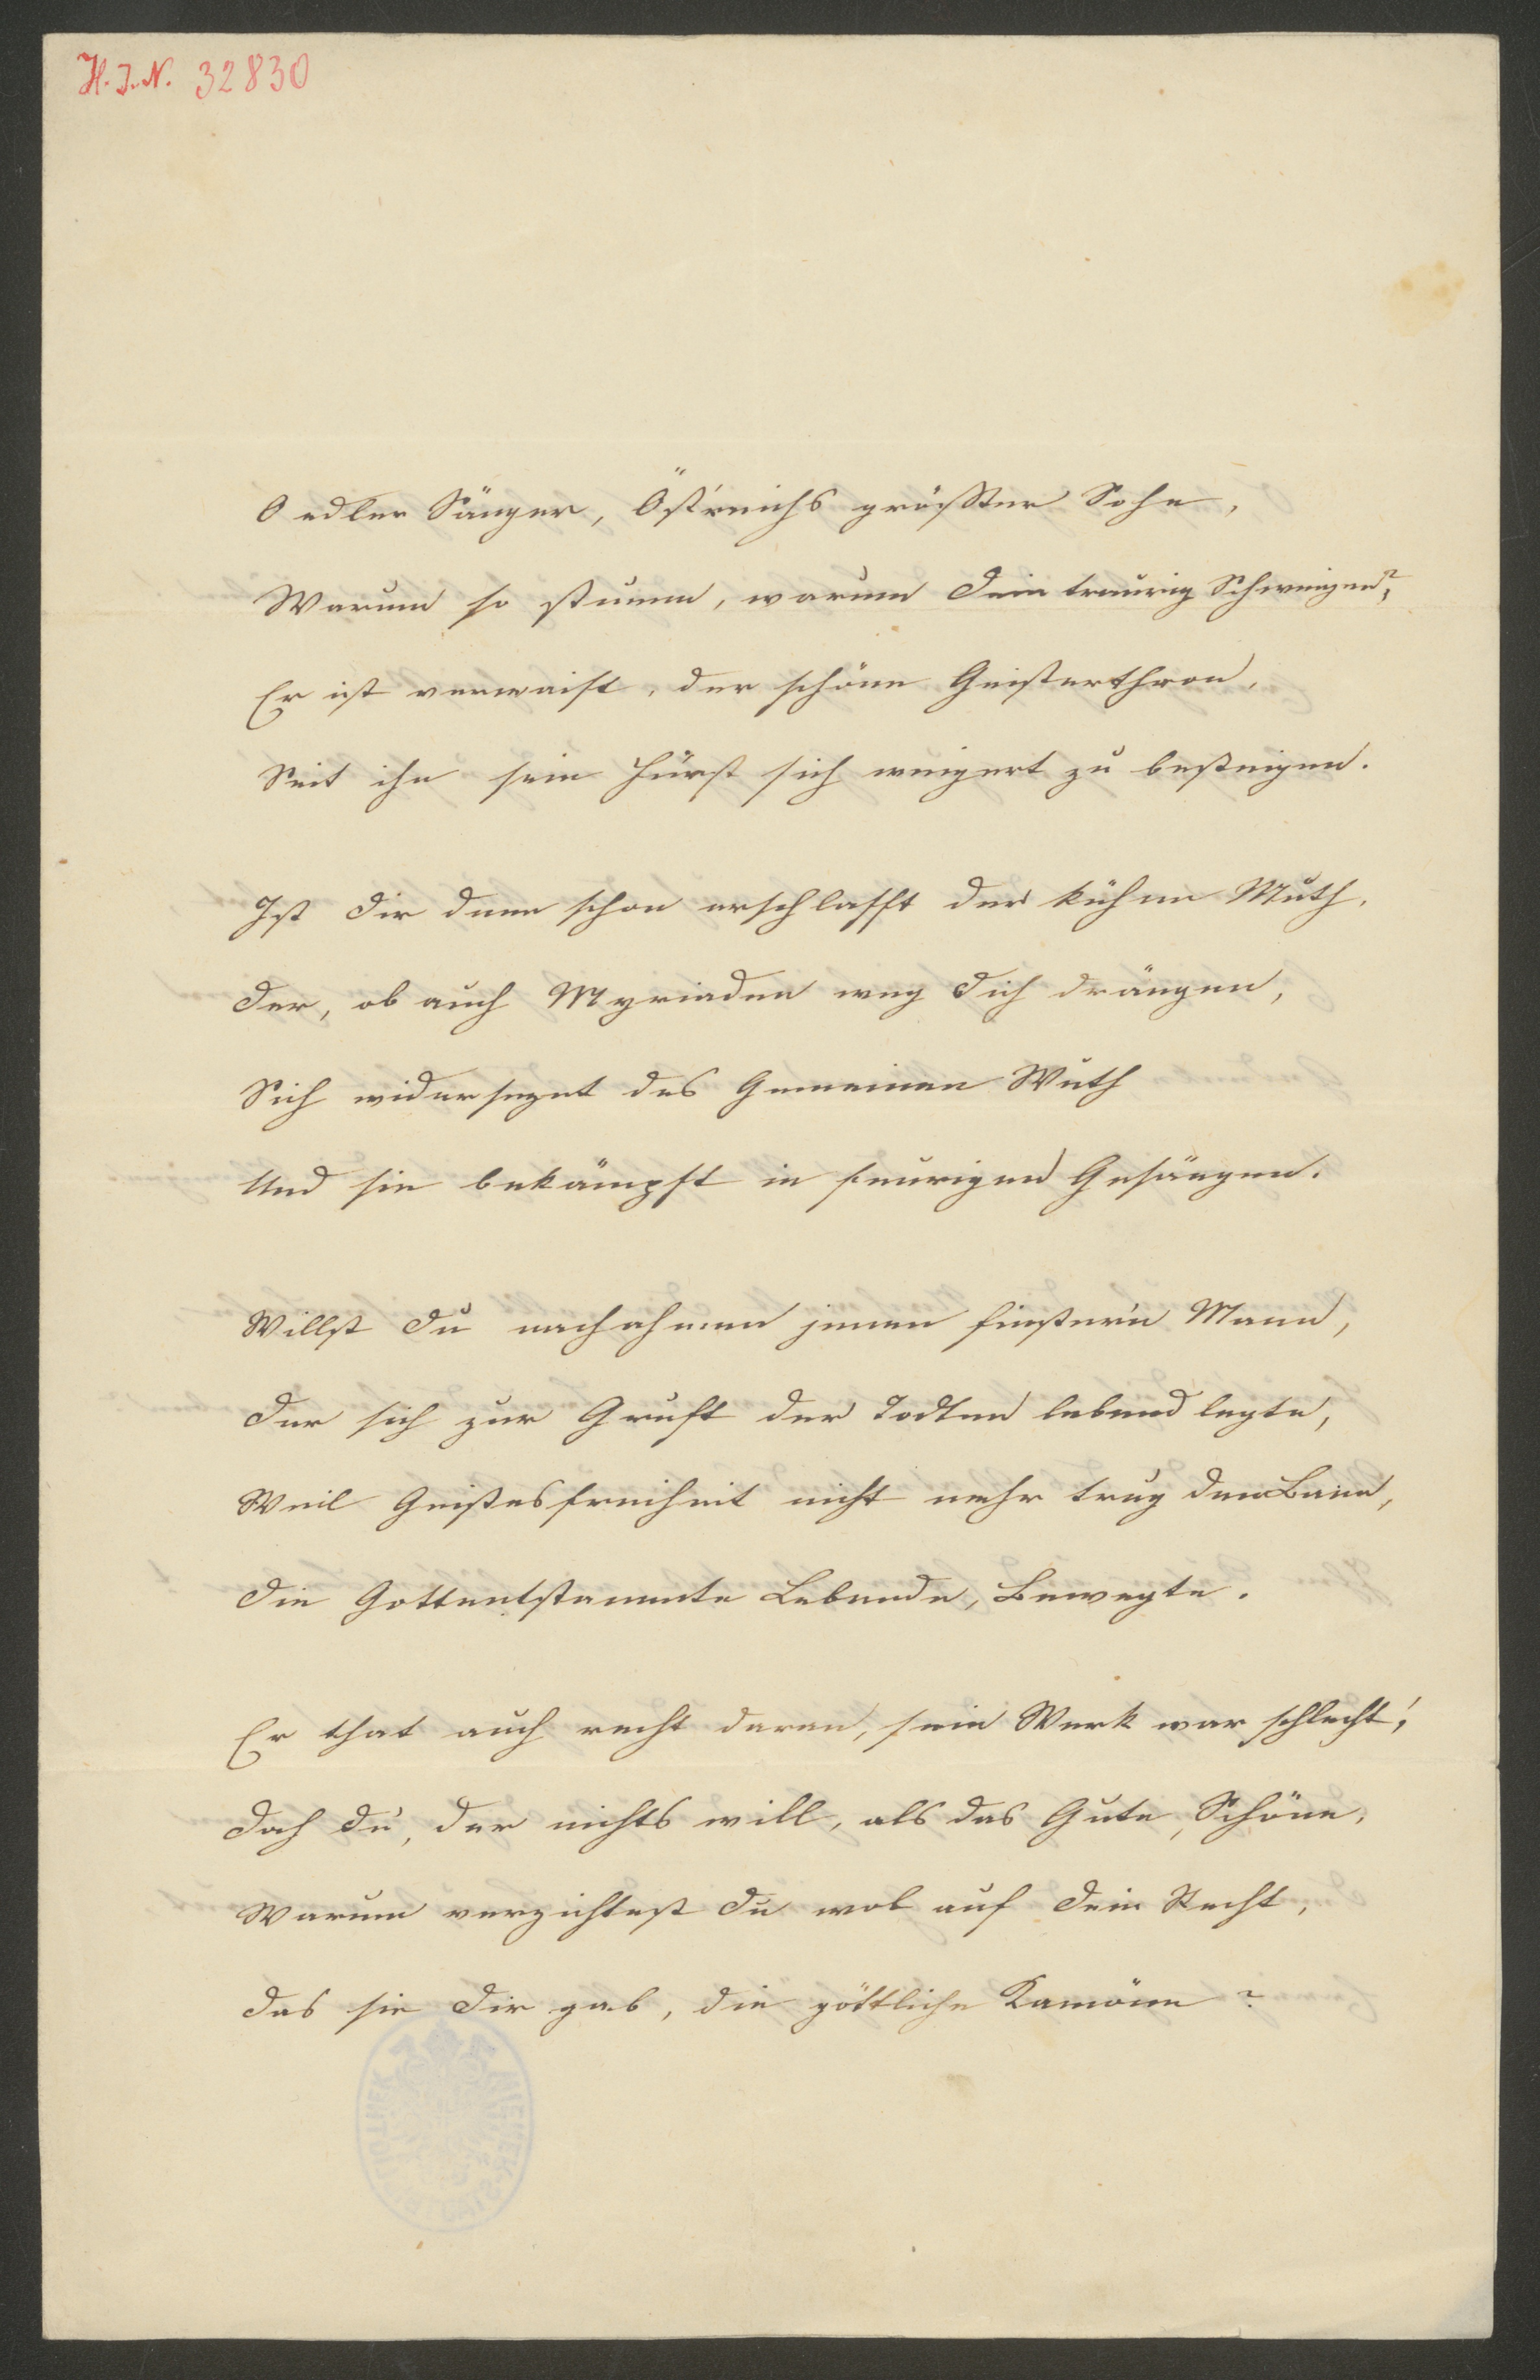 H. I. N. 32830
O edler Sänger, Öst'reichs größter Sohn,
Warum so stumm, warum Dein traurig Schweigen?,
Er ist verwaist, der schöne Geisterthron,
Seit ihn sein Fürst sich weigert zu besteigen.
Ist Dir denn schon erschlafft der kühne Muth,
Der, ob auch Myriaden weg Dich drängen,
Sich widersezet des Gemeinen Wuth
Und sie bekämpft in feurigen Gesängen.
Willst Du nachahmen jenen finster'n Mann,
Der sich zur Gruft der Todten lebend legte,
Weil Geistesfreiheit nicht mehr trug den Bann,
Die Gottentstammte Lebende, Bewegte.
Er that auch recht daran, sein Werk war schlecht;
Doch Du, der nichts will, als das Gute, Schöne,
Warum verzichtest Du wol auf Dein Recht,
Das sie Dir gab, die göttliche Kamöne?